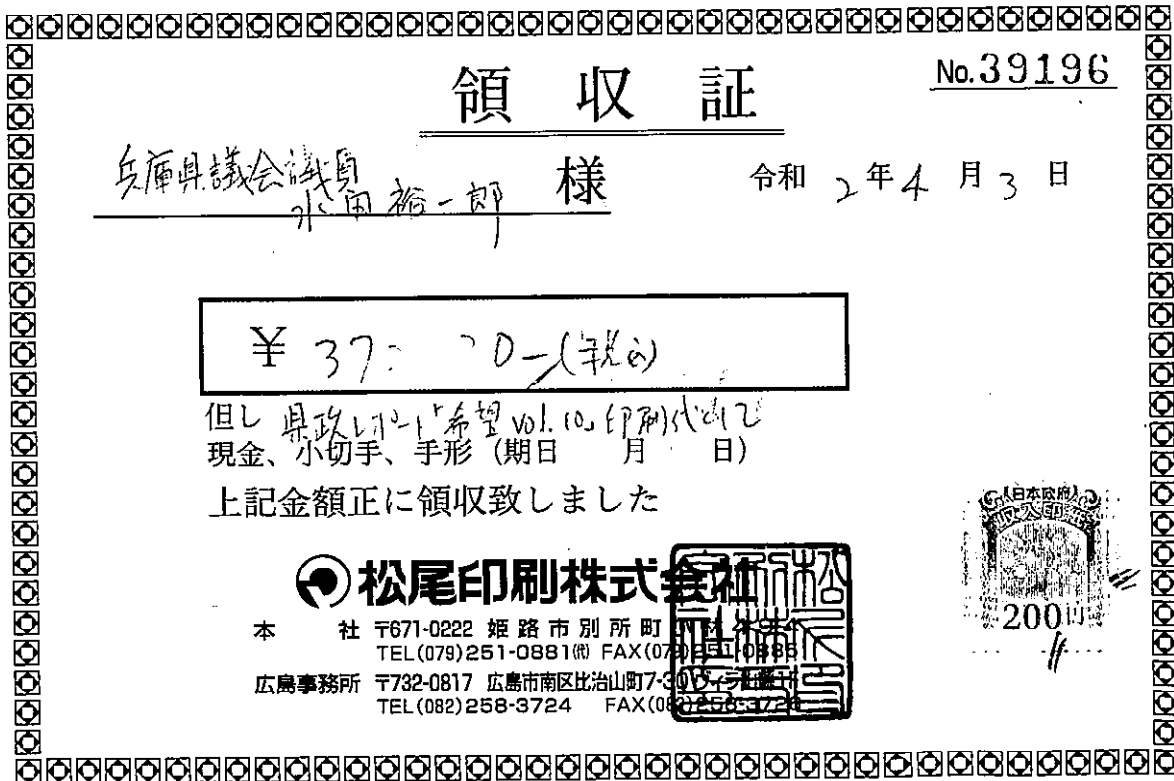 領収証
No.39196
兵庫県議会議員
水田裕一郎 様
令和 2年4月3日
¥ 37 0-(税込)
但し 県政レポート「希望 vol.10」印刷代として
現金、小切手、手形 (期日 月 日)
上記金額正に領収致しました
松尾印刷株式会社
本社 〒671-0222 姫路市別所町
TEL(079)251-0881㈹ FAX(079)251-0886
広島事務所 〒732-0817 広島市南区比治山町7-30
TEL(082)258-3724 FAX(082)258-3726
日本政府
収入印紙
200円